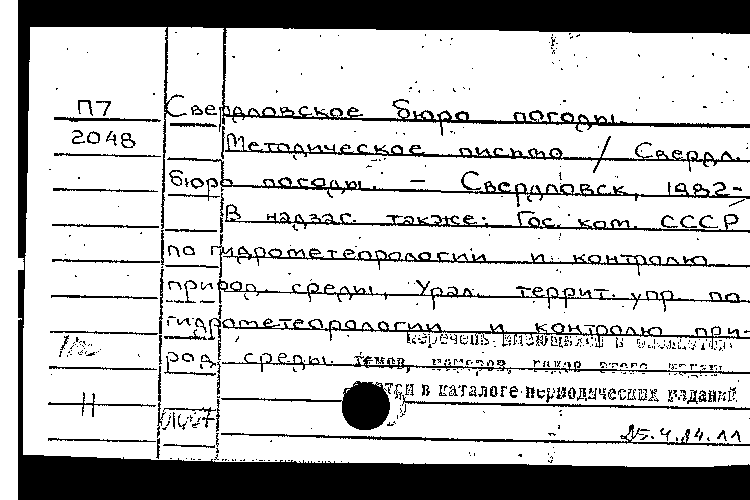 П7 Свердловское бюро погоды.
2048 Методическое письмо / Свердл.
бюро погоды. – Свердловск, 1982-
В надзаг. также: Гос. ком. СССР
по гидрометеорологии и контролю
природ. среды, Урал. террит. упр. по
гидрометеорологии и контролю при-
род. среды.
Перечень имеющихся в
томов, номеров, годов этого
в каталоге периодических изданий
II
25.4.14.11